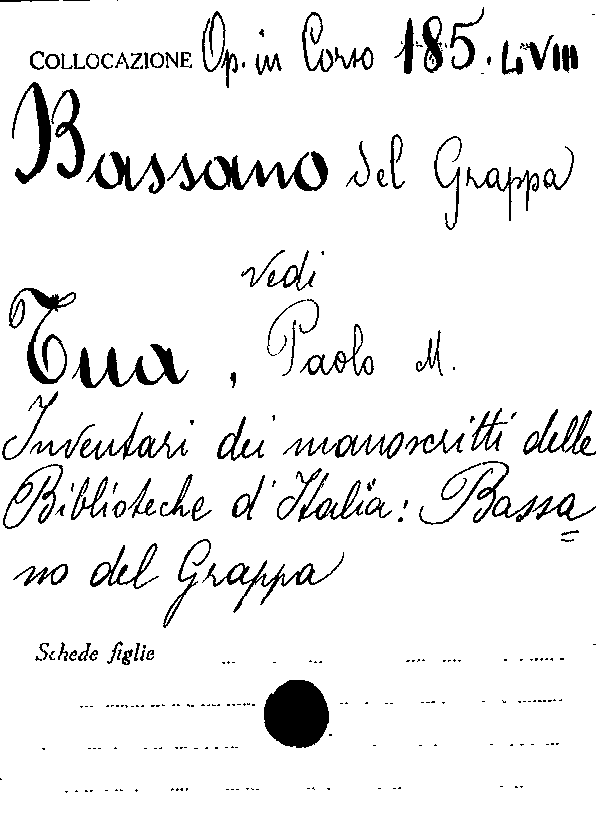 COLLOCAZIONE Op. in Corso 185. LVIII
Bassano del Grappa
vedi
Tua, Paolo M.
Inventari dei manoscritti delle
Biblioteche d'Italia: Bassa=
no del Grappa
Schede figlie